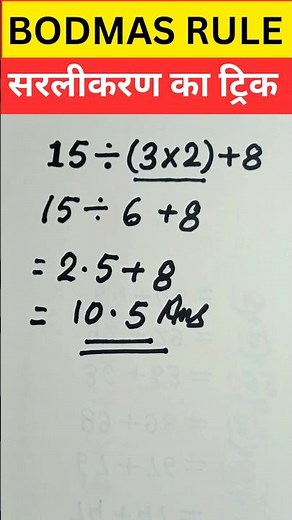 BODMAS RULE
सरलीकरण का ट्रिक
15÷(3×2)+8
15÷ 6 +8
= 2.5+8
= 10.5 Ans